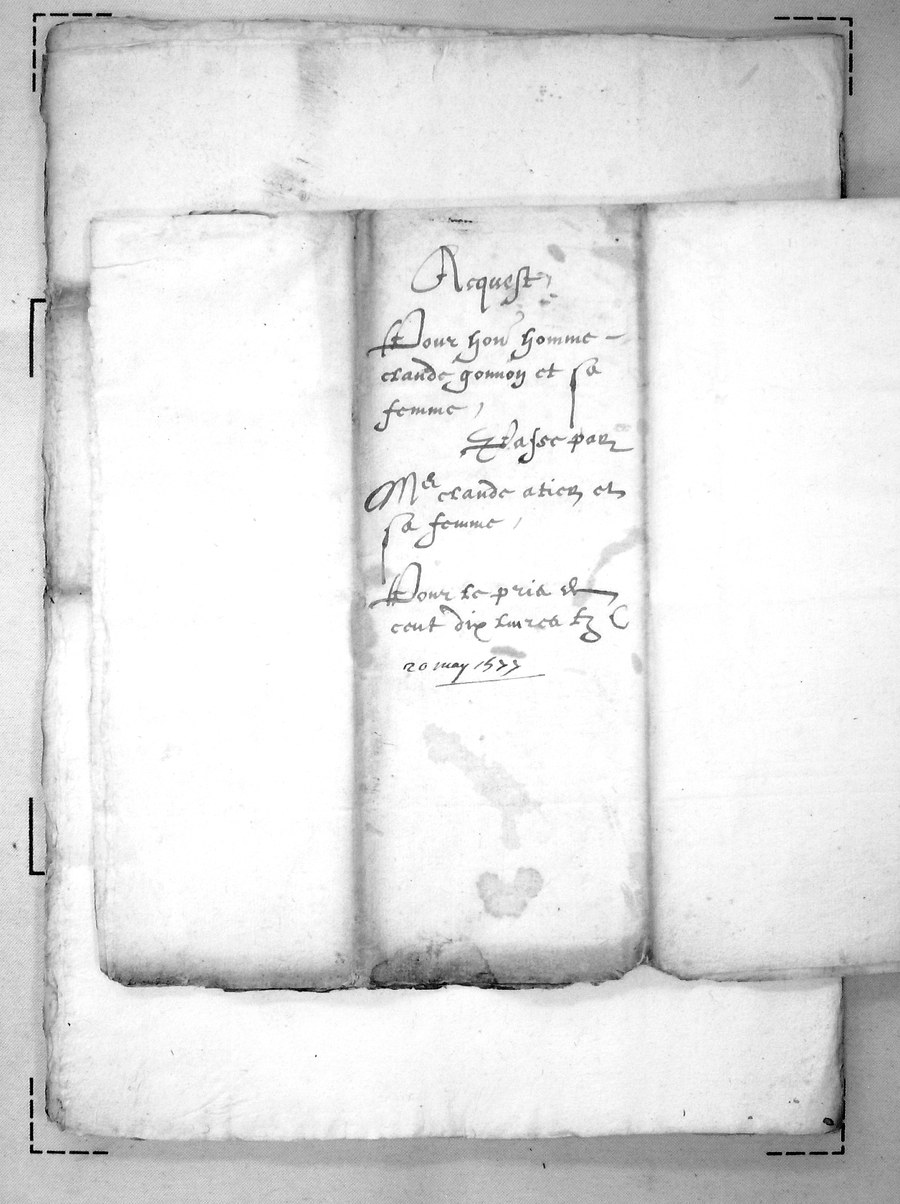 Acquest
Pour hon homme
claude gonnon et sa
femme
Passe par
Me claude atier et
sa femme
Pour le pris de
cent dix livres tz
20 may 1577